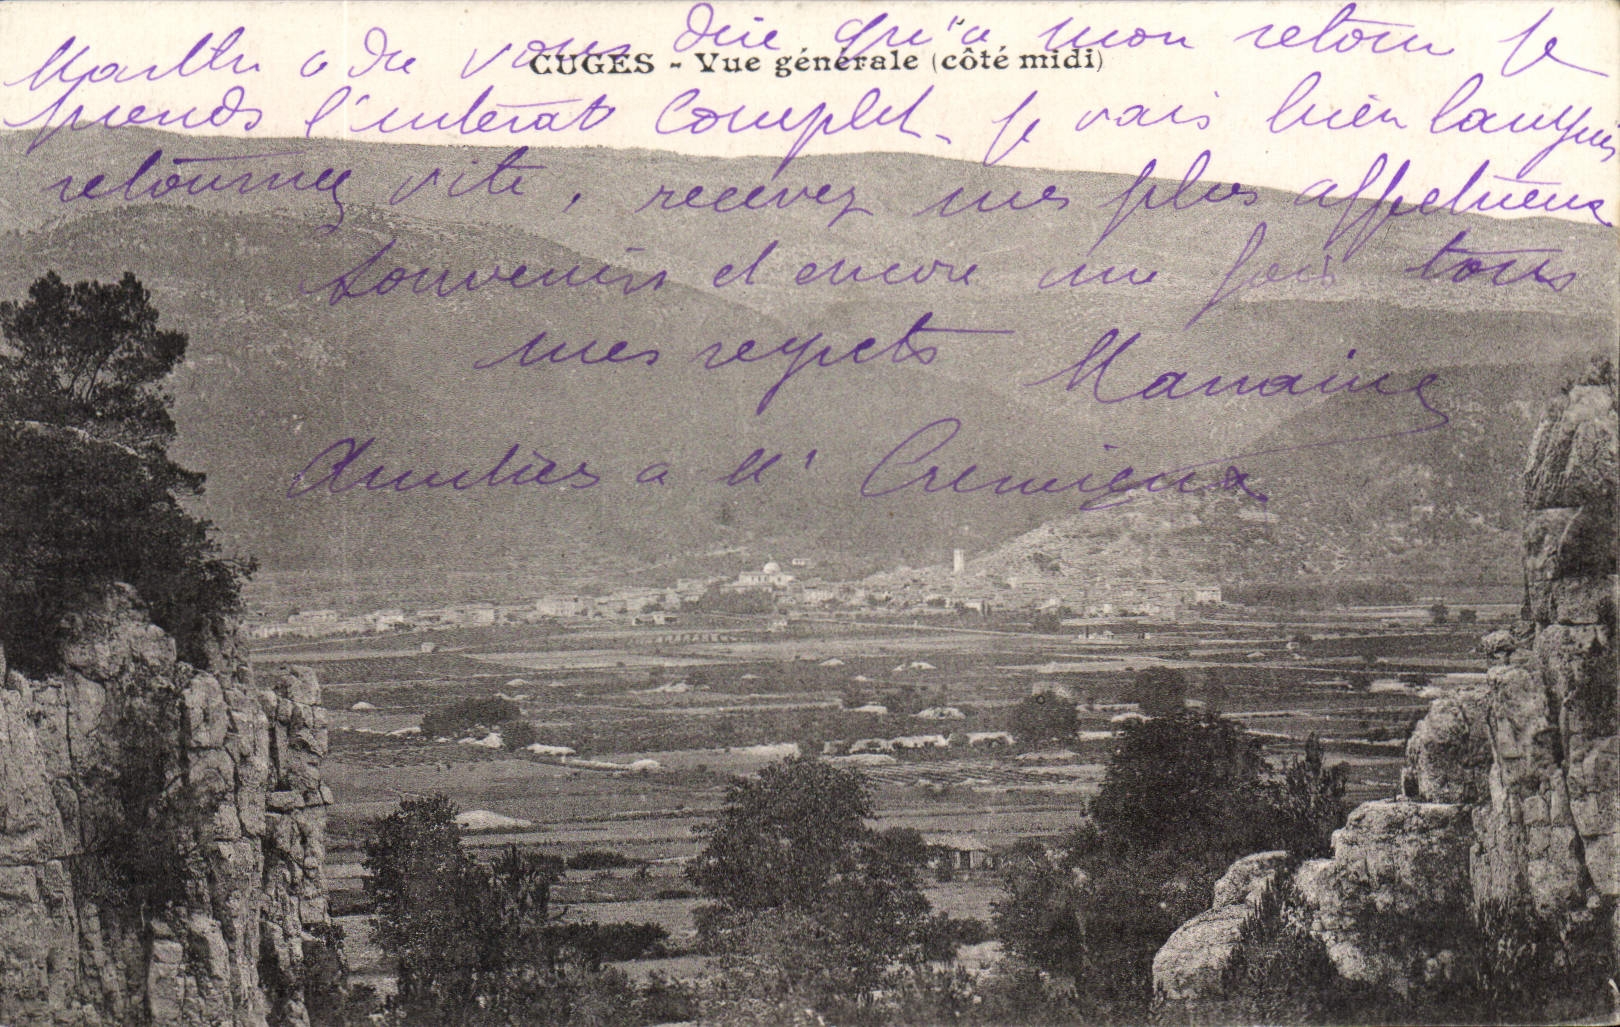 CUGES - Vue générale (côté midi)
Marthe a du vous dire qu'à mon retour je
prends l'internat complet. Je vais bien languir
retournez vite, recevez mes plus affectueux
souvenirs et encore une fois tous
mes regrets
Amitiés a Mr Cremieux